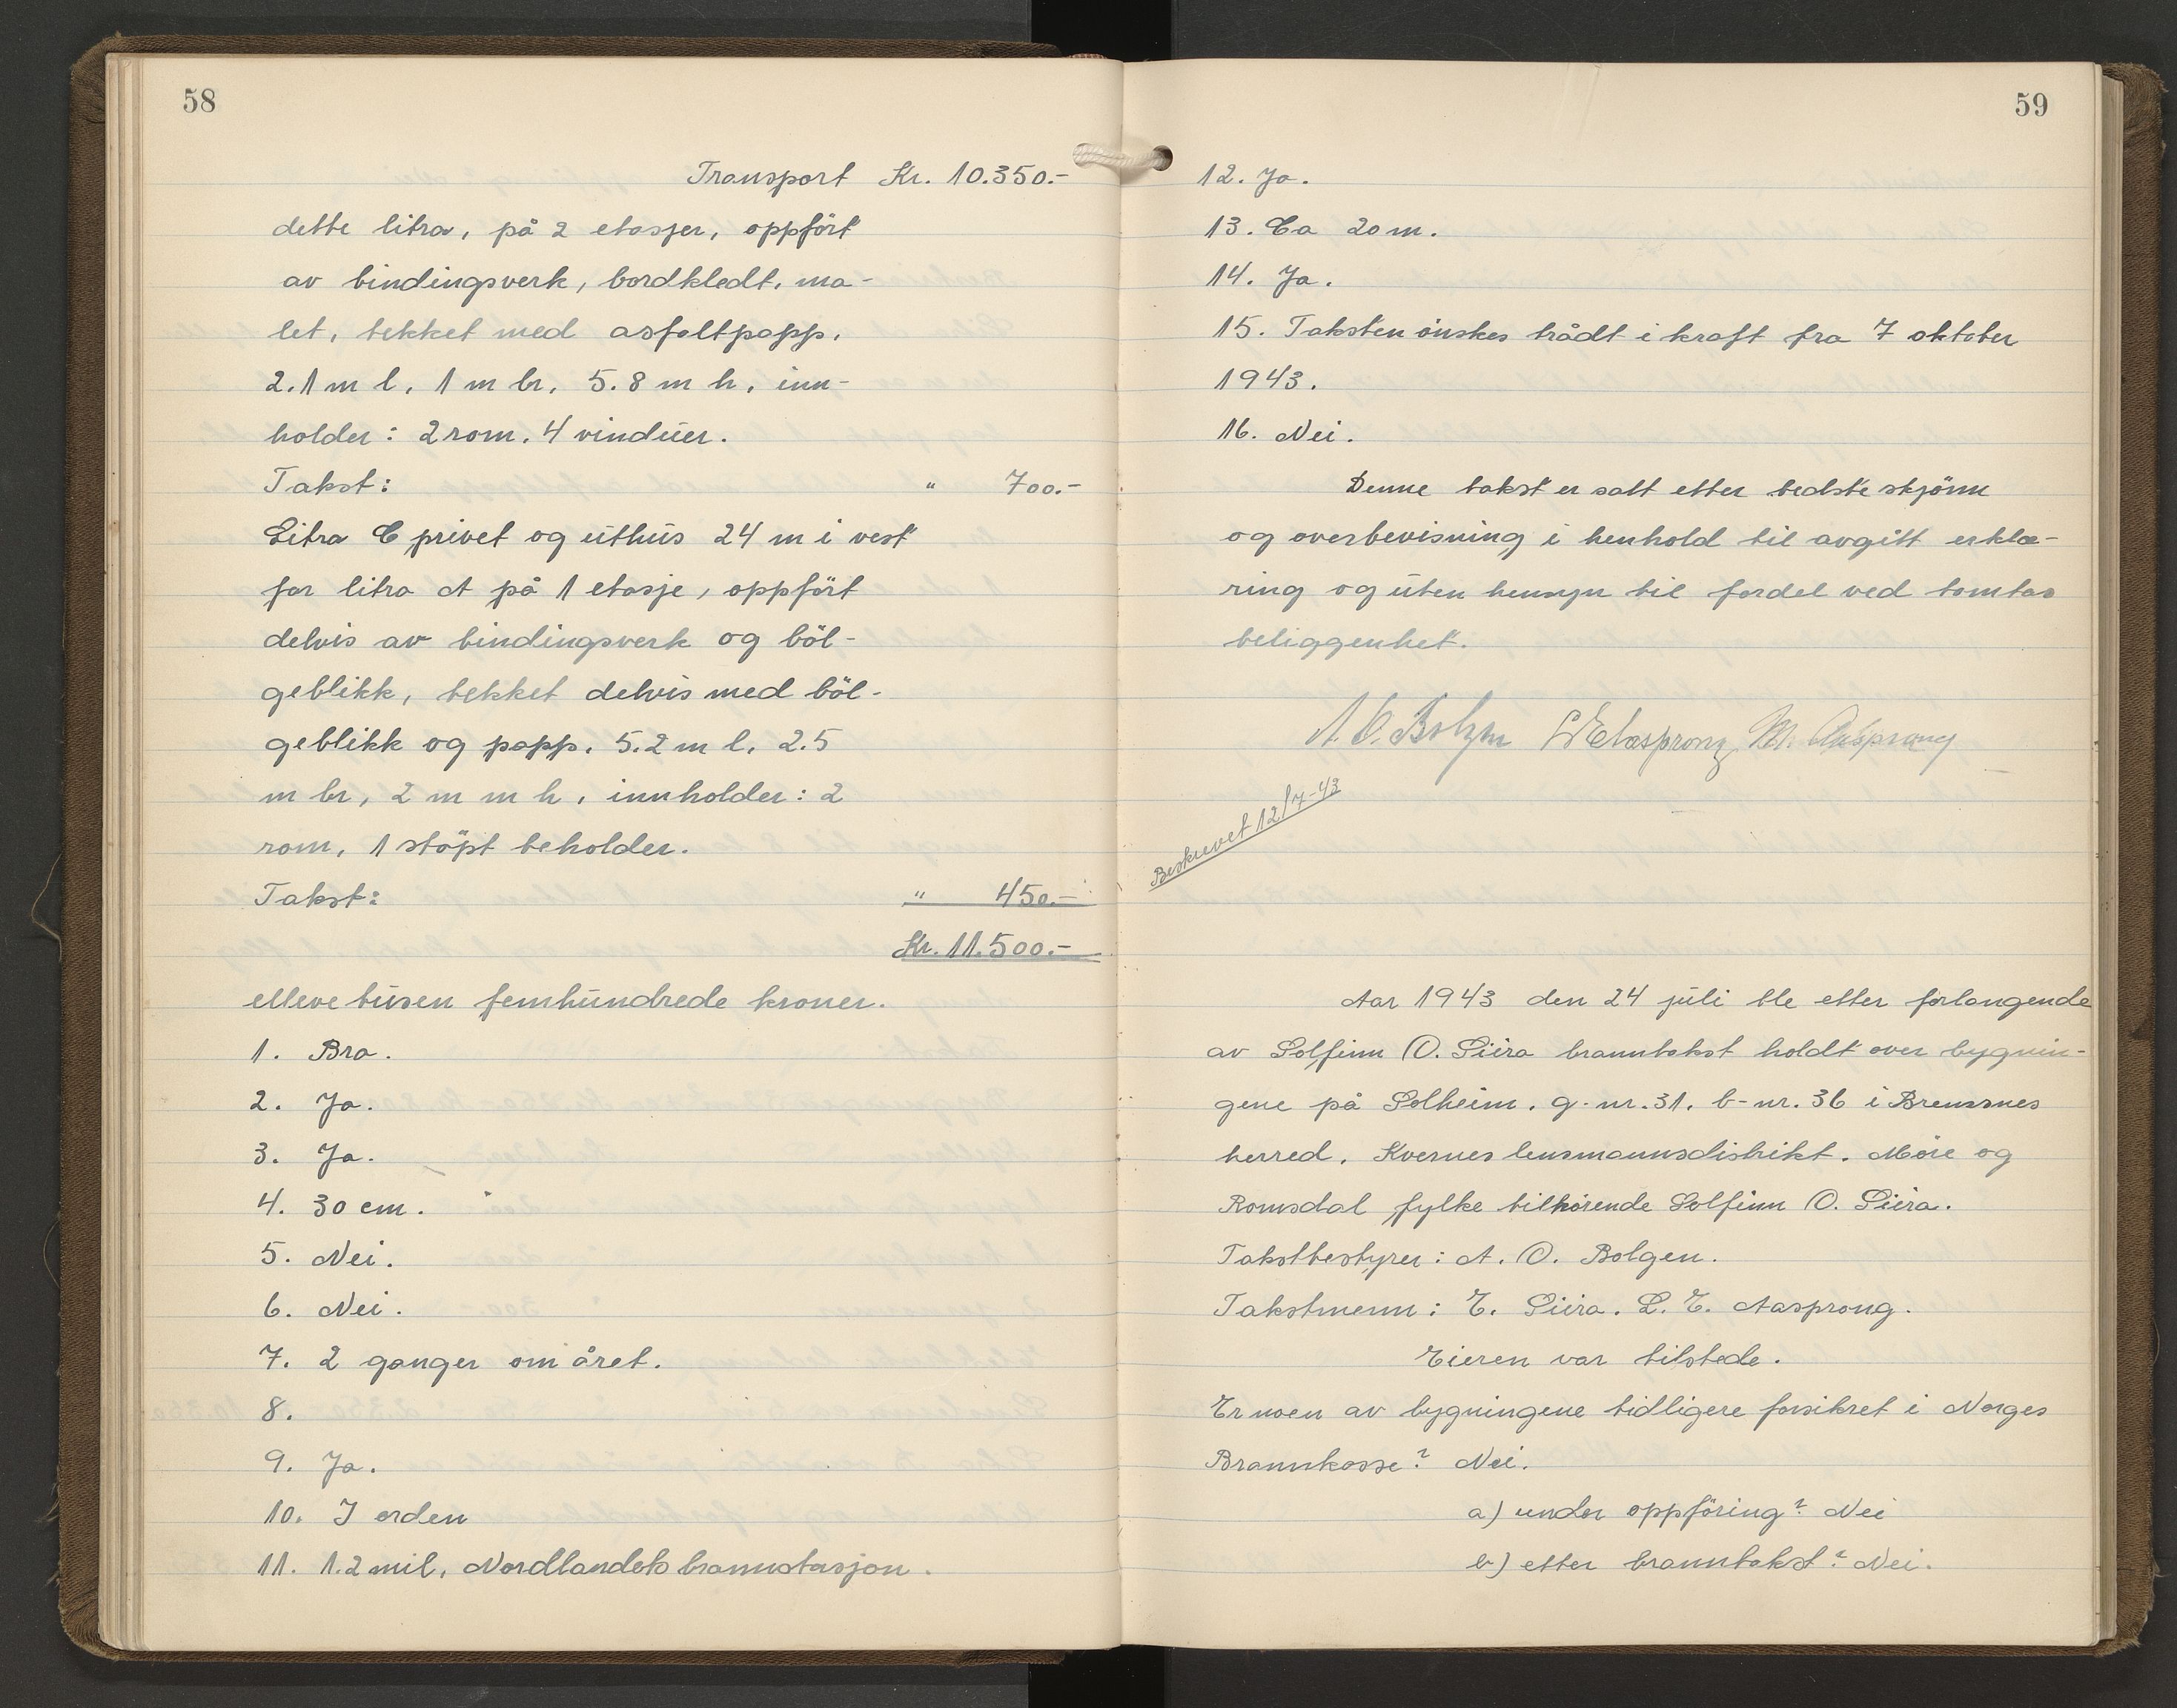 58
Transport Kr. 10.350.-
dette litra, på 2 etasjer, oppfört
av bindingsverk, bordkledt, ma-
let, tekket med asfaltpapp.
2.1 m l, 1 m br, 5.8 m h, inn-
holder: 2 rom, 4 vinduer.
Takst: " 700.-
Litra C privet og uthus 24 m i vest
for litra A på 1 etasje, oppfört
delvis av bindingsverk og böl-
geblikk, tekket delvis med böl-
geblikk og papp. 5.2 m l, 2.5
m br, 2 m m h, innholder: 2
rom, 1 stöpt beholder.
Takst: " 450.-
Kr. 11.500.-
elleve tusen femhundrede kroner.
1. Bra.
2. Ja.
3. Ja.
4. 30 cm.
5. Nei.
6. Nei.
7. 2 ganger om året.
8.
9. Ja.
10. I orden
11. 1.2 mil, Nordlandets brannstasjon.
59
12. Ja.
13. Ca 20 m.
14. Ja.
15. Taksten önskes trådt i kraft fra 7 oktober
1943.
16. Nei.
Denne takst er satt etter bedste skjönn
og overbevisning i henhold til avgitt erklæ-
ring og uten hensyn til fordel ved tomtas
beliggenhet.
A. O. Bolgen L E Aasprong M. Aasprong
Beskrevet 12/7-43
Aar 1943 den 24 juli ble etter forlangende
av Solfinn O. Siira branntakst holdt over bygnin-
gene på Solheim, g-nr. 31, b-nr. 36 i Bremsnes
herred, Kvernes lensmannsdistrikt, Möre og
Romsdal fylke tilhörende Solfinn O. Siira.
Takstbestyrer: A. O. Bolgen.
Takstmenn: E. Siira. L. E. Aasprong.
Eieren var tilstede.
Er noen av bygningene tidligere forsikret i Norges
Brannkasse? Nei.
a) under oppföring? Nei
b) etter branntakst? Nei.